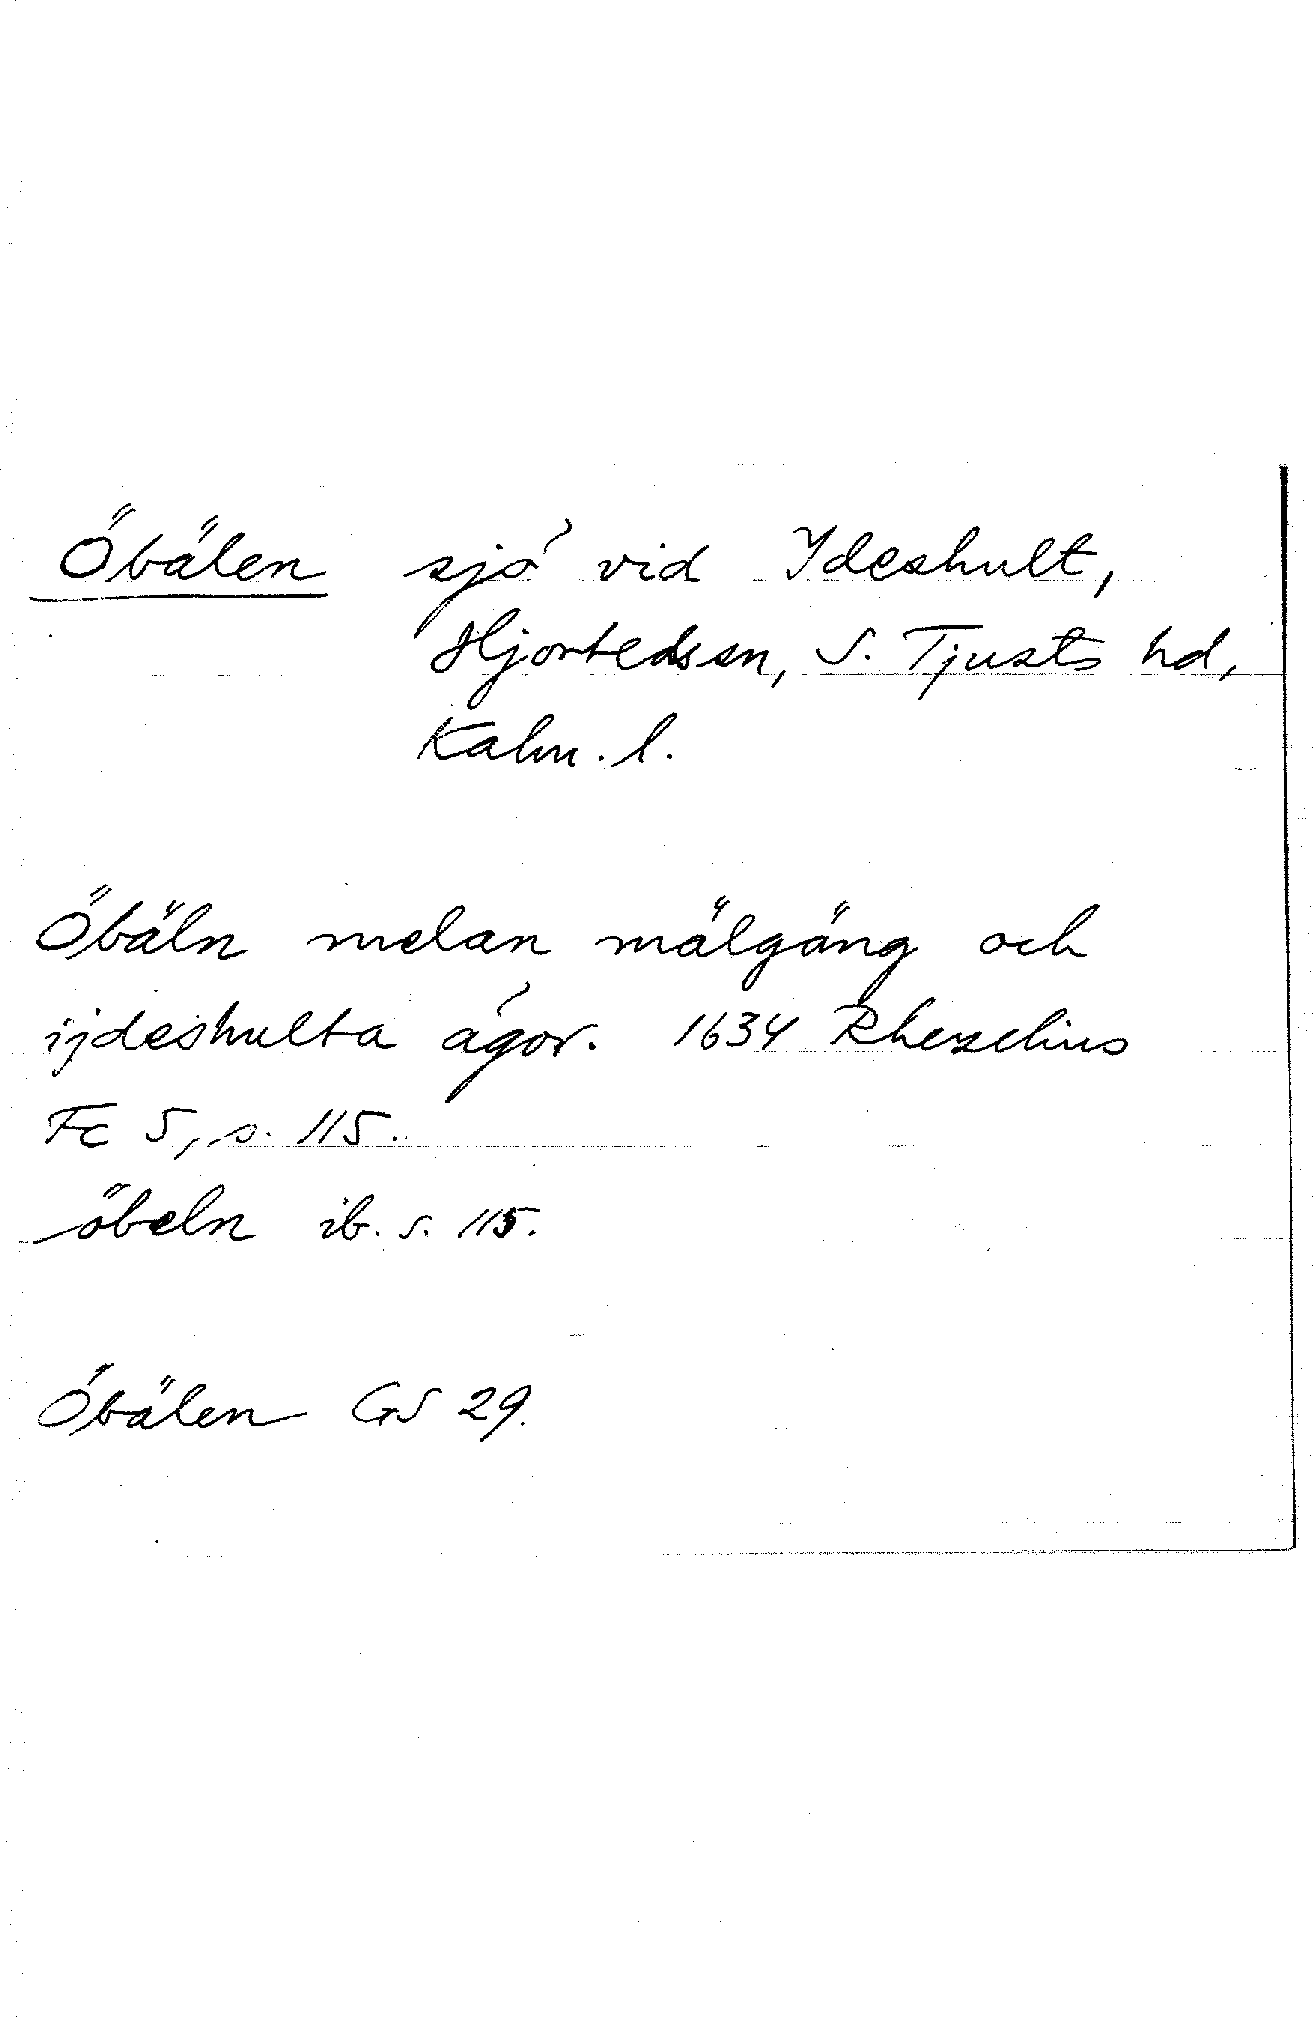 Öbälen sjö vid Ydeshult,
Hjorteds sn, S. Tjusts hd,
Kalm. l.
Öbäln melan mälgäng och
ijdeshulta ägor. 1634 Rhezelius
Fc 5, s. 115.
öbeln ib. s. 115.
Öbälen GS 29.